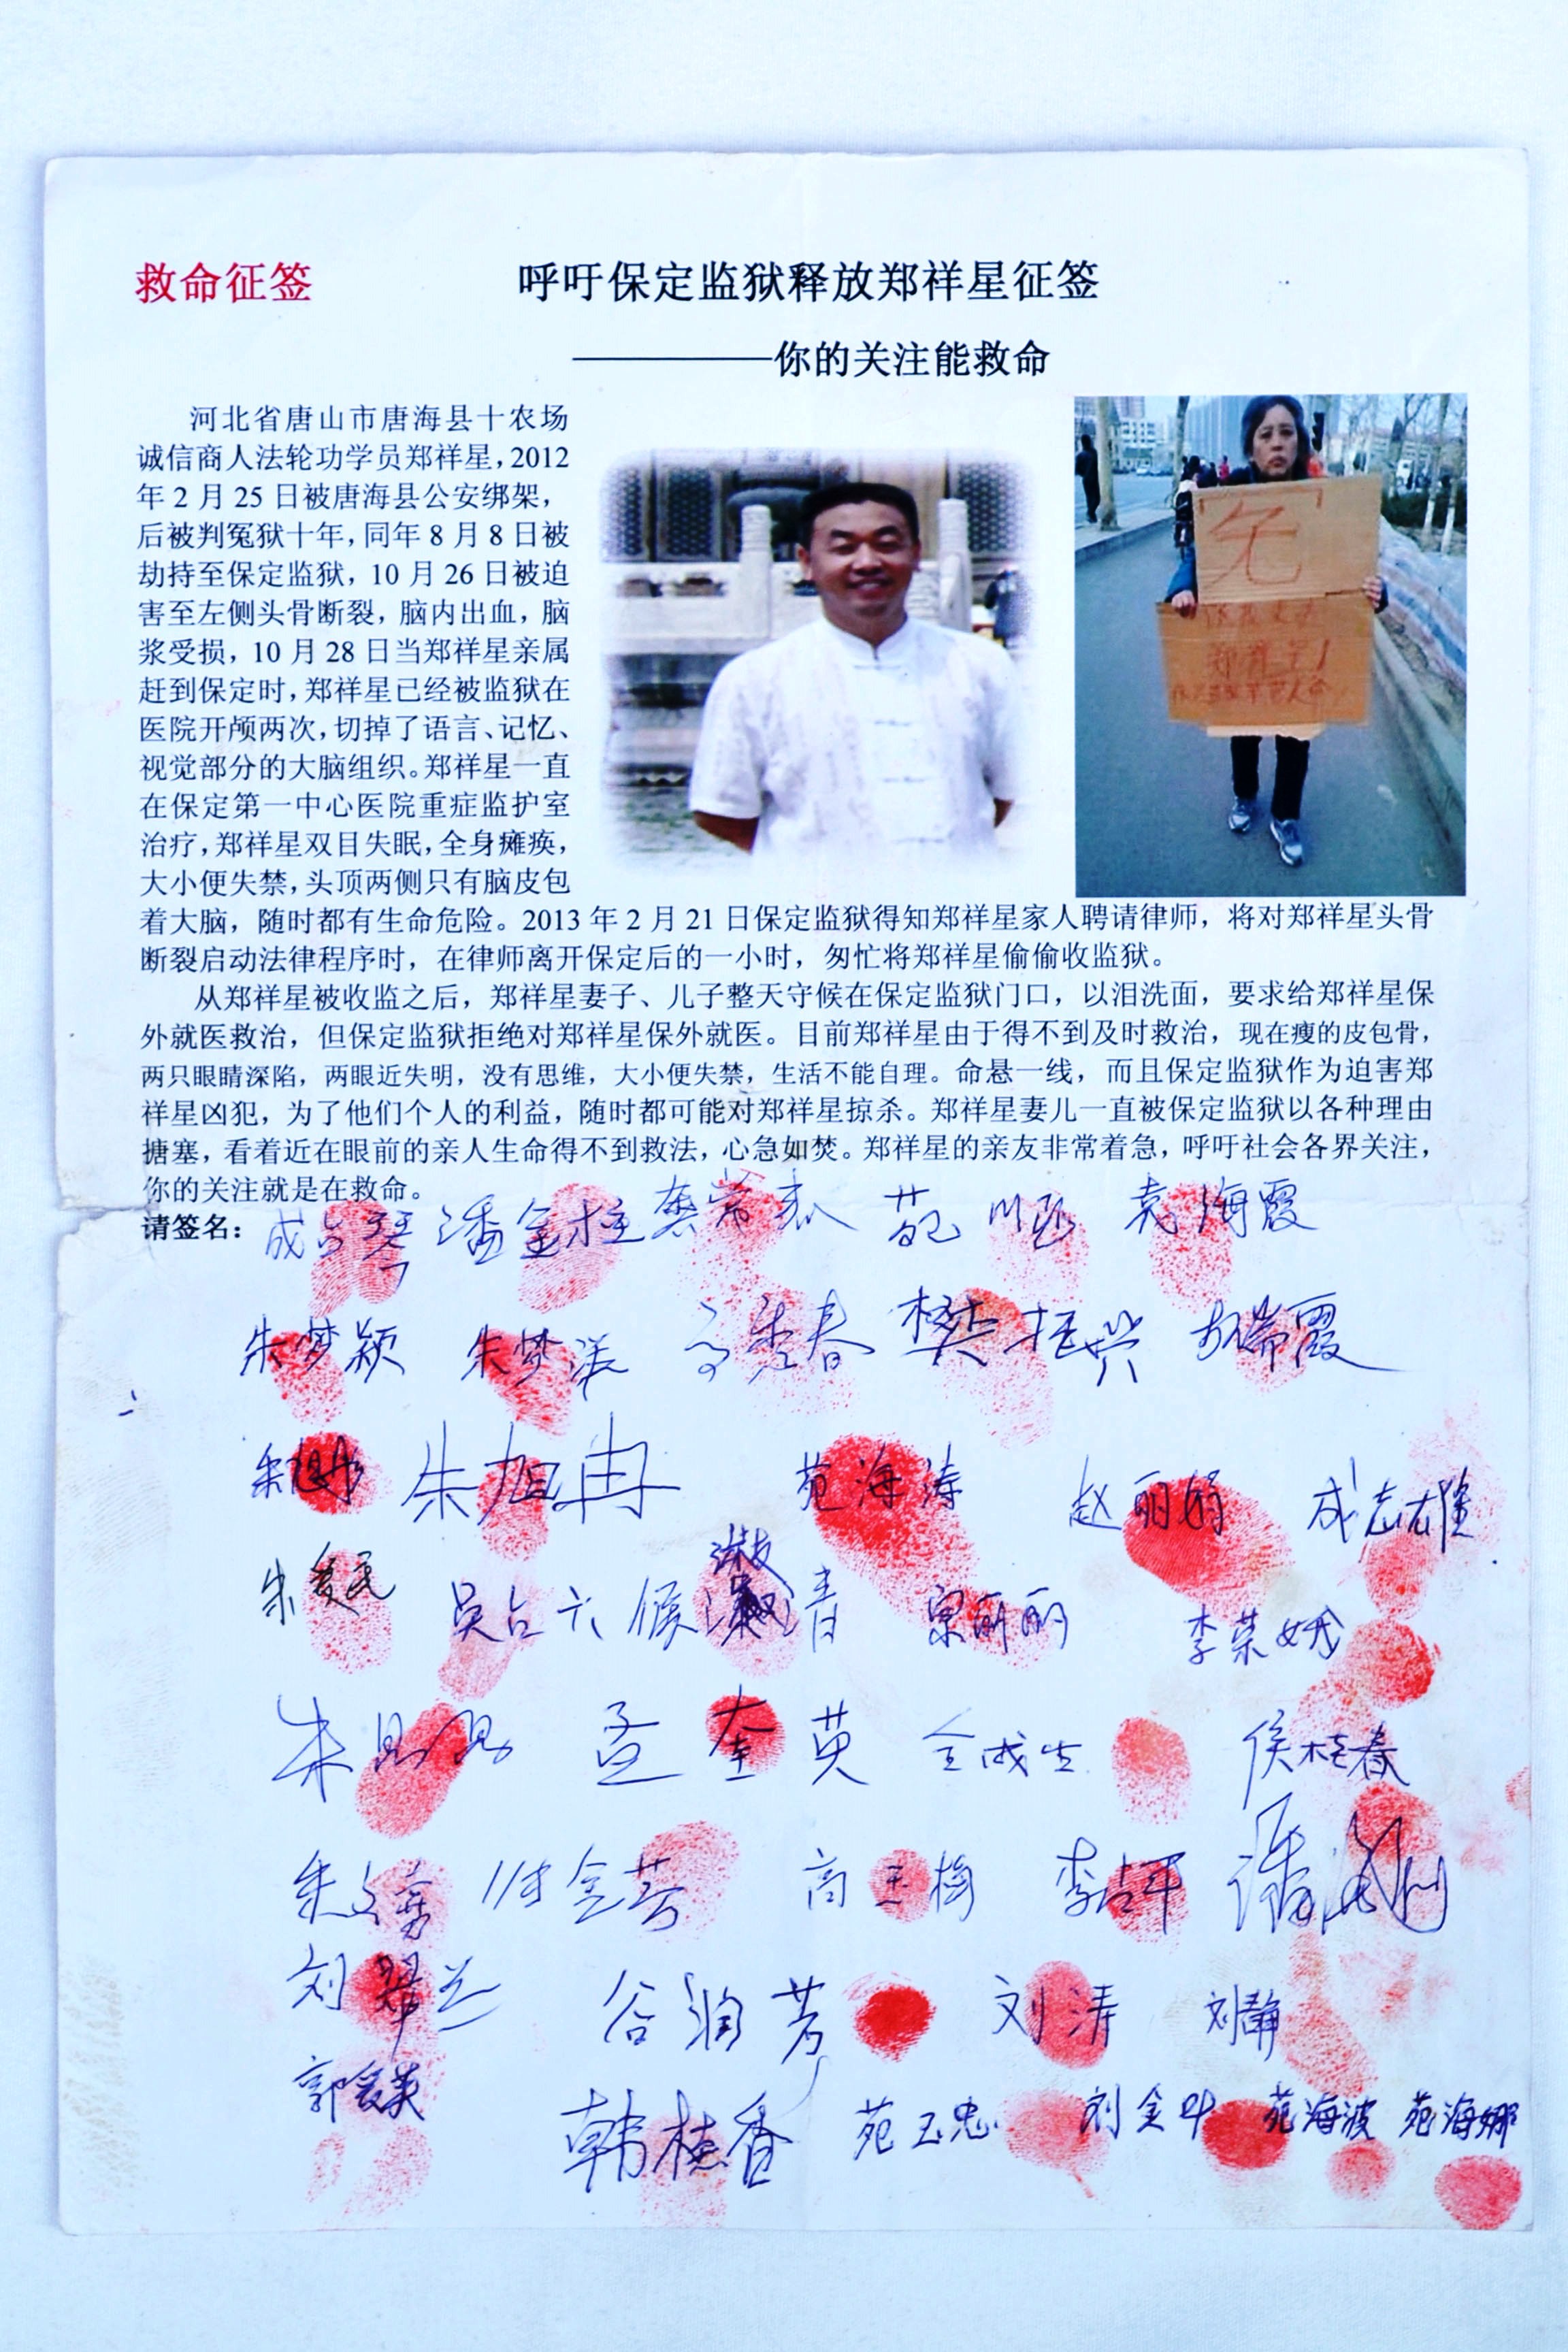 救命征签
呼吁保定监狱释放郑祥星征签
—————你的关注能救命
河北省唐山市唐海县十农场
诚信商人法轮功学员郑祥星，2012
年 2 月 25 日被唐海县公安绑架，
后被判冤狱十年，同年 8 月 8 日被
劫持至保定监狱，10 月 26 日被迫
害至左侧头骨断裂，脑内出血，脑
浆受损，10 月 28 日当郑祥星亲属
赶到保定时，郑祥星已经被监狱在
医院开颅两次，切掉了语言、记忆、
视觉部分的大脑组织。郑祥星一直
在保定第一中心医院重症监护室
治疗，郑祥星双目失眠，全身瘫痪，
大小便失禁，头顶两侧只有脑皮包
着大脑，随时都有生命危险。2013 年 2 月 21 日保定监狱得知郑祥星家人聘请律师，将对郑祥星头骨
断裂启动法律程序时，在律师离开保定后的一小时，匆忙将郑祥星偷偷收监狱。
从郑祥星被收监之后，郑祥星妻子、儿子整天守候在保定监狱门口，以泪洗面，要求给郑祥星保
外就医救治，但保定监狱拒绝对郑祥星保外就医。目前郑祥星由于得不到及时救治，现在瘦的皮包骨，
两只眼睛深陷，两眼近失明，没有思维，大小便失禁，生活不能自理。命悬一线，而且保定监狱作为迫害郑
祥星凶犯，为了他们个人的利益，随时都可能对郑祥星掠杀。郑祥星妻儿一直被保定监狱以各种理由
搪塞，看着近在眼前的亲人生命得不到救法，心急如焚。郑祥星的亲友非常着急，呼吁社会各界关注，
你的关注就是在救命。
请签名： 成占琴 潘金柱 袁海霞
朱梦颖 朱梦洋 樊振兴
朱旭冉 苑海涛 赵丽娟 成志雄
吴占六 侯淑青 梁丽丽 李荣娥
孟奎英 侯桂春
高玉梅 李占军
刘翠兰 谷润芳 刘涛 刘静
郭爱英 韩桂香 苑玉忠 刘金叶 苑海波 苑海娜